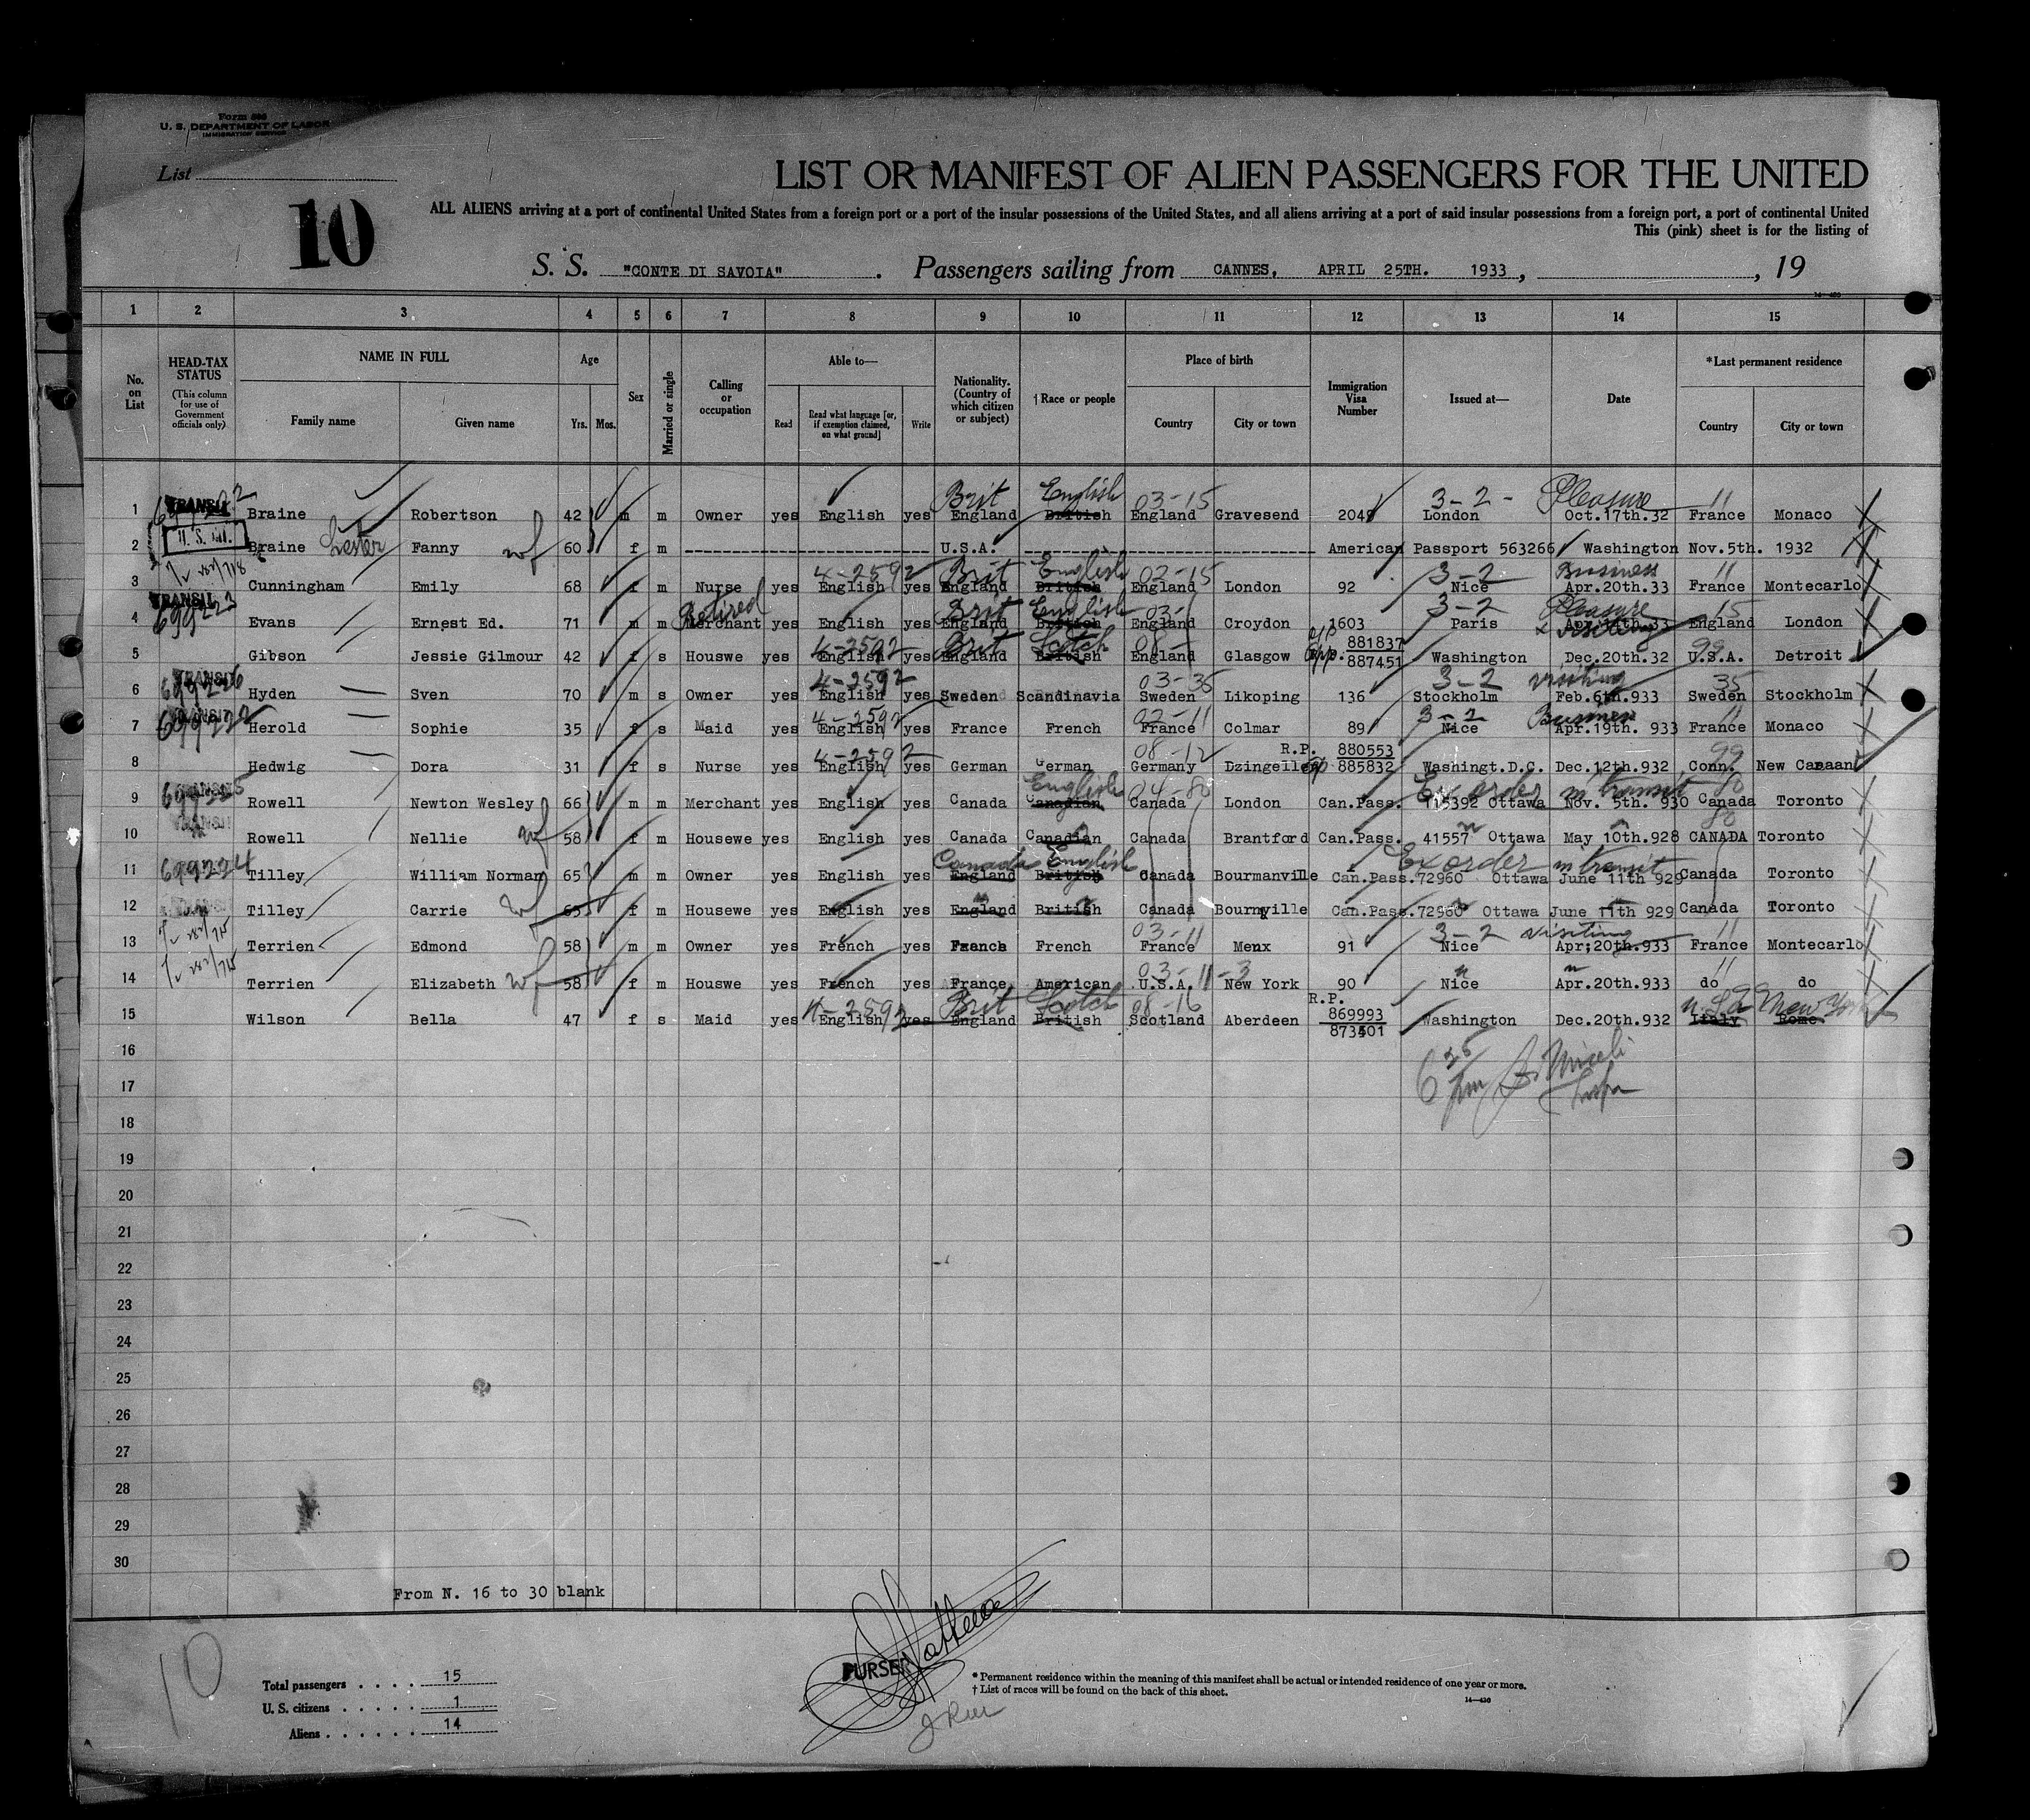 Form 500
U. S. DEPARTMENT OF LABOR
IMMIGRATION SERVICE
List
10
LIST OR MANIFEST OF ALIEN PASSENGERS FOR THE UNITED
ALL ALIENS arriving at a port of continental United States from a foreign port or a port of the insular possessions of the United States, and all aliens arriving at a port of said insular possessions from a foreign port, a port of continental United
This (pink) sheet is for the listing of
S. S. "CONTE DI SAVOIA". Passengers sailing from CANNES, APRIL 25TH. 1933, , 19
1 2 3 4 5 6 7 8 9 10 11 12 13 14 15
No. on List
HEAD-TAX STATUS
(This column for use of Government officials only)
NAME IN FULL
Family name Given name
Age
Yrs. Mos.
Sex
Married or single
Calling or occupation
Able to—
Read
Read what language [or, if exemption claimed, on what ground]
Write
Nationality. (Country of which citizen or subject)
†Race or people
Place of birth
Country City or town
Immigration Visa Number
Issued at—
Date
*Last permanent residence
Country City or town
TRANSIT Brit English 03-15 3-2- Pleasure 11
1 Braine Robertson 42 m m Owner yes English yes England British England Gravesend 2049 London Oct.17th.32 France Monaco
2 Braine Lester Fanny wf 60 f m U.S.A. American Passport 563266 Washington Nov.5th. 1932
4-2592 Brit English 02-15 3-2 Business 11
3 Cunningham Emily 68 f m Nurse yes English yes England British England London 92 Nice Apr.20th.33 France Montecarlo
TRANSIT 699223 Retired Brit English 03- 3-2 Pleasure 15
4 Evans Ernest Ed. 71 m m Merchant yes English yes England British England Croydon 1603 Paris Apr.14th.33 England London
4-2592 Brit Scotch 08- 881837 visiting 99
5 Gibson Jessie Gilmour 42 f s Houswe yes English yes England British England Glasgow 887451 Washington Dec.20th.32 U.S.A. Detroit
TRANSIT 699226 4-2592 03-35 3-2 visiting 35
6 Hyden Sven 70 m s Owner yes English yes Sweden Scandinavia Sweden Likoping 136 Stockholm Feb.6th.933 Sweden Stockholm
TRANSIT 4-2592 02-11 3-2 Business 11
7 Herold Sophie 35 f s Maid yes English yes France French France Colmar 89 Nice Apr.19th. 933 France Monaco
4-2592 08-12 R.P. 880553 99
8 Hedwig Dora 31 f s Nurse yes English yes German German Germany Dzingelle 885832 Washingt.D.C. Dec.12th.932 Conn. New Canaan
TRANSIT 699225 English 04-80 Ex order in transit 80
9 Rowell Newton Wesley 66 m m Merchant yes English yes Canada Canadian Canada London Can.Pass. 115392 Ottawa Nov. 5th. 930 Canada Toronto
TRANSIT 80
10 Rowell Nellie wf 58 f m Housewe yes English yes Canada Canadian Canada Brantford Can.Pass. 41557 Ottawa May 10th.928 CANADA Toronto
699224 Canada English Ex order in transit
11 Tilley William Norman 65 m m Owner yes English yes England British Canada Bourmanville Can.Pass.72960 Ottawa June 11th 929 Canada Toronto
12 Tilley Carrie wf 65 f m Housewe yes English yes England British Canada Bournville Can.Pass.72960 Ottawa June 11th 929 Canada Toronto
03-11 3-2 visiting 11
13 Terrien Edmond 58 m m Owner yes French yes French French France Menx 91 Nice Apr;20th.933 France Montecarlo
03-11-3 11
14 Terrien Elizabeth wf 58 f m Houswe yes French yes France American U.S.A. New York 90 Nice Apr.20th.933 do do
4-2592 Brit Scotch 08-16 R.P. 99 New York
15 Wilson Bella 47 f s Maid yes English yes England British Scotland Aberdeen 869993 Washington Dec.20th.932 Italy Rome
873401
16
6 25 pm
17
18
19
20
21
22
23
24
25
26
27
28
29
30
From N. 16 to 30 blank
10
PURSER
Total passengers . . . . 15
U. S. citizens . . . . . 1
Aliens . . . . . . 14
* Permanent residence within the meaning of this manifest shall be actual or intended residence of one year or more.
† List of races will be found on the back of this sheet.
14—430